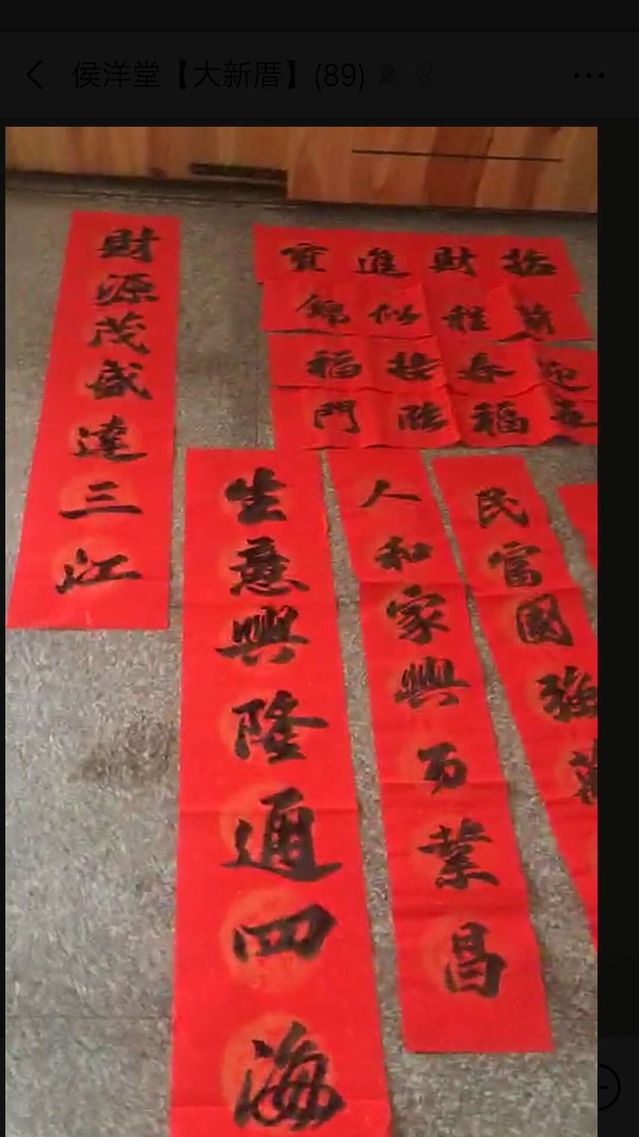 侯洋堂【大新厝】(89)
招財進寳
前程似錦
迎春接福
五福臨門
財源茂盛達三江
生意興隆通四海
人和家興万業昌
民富國強萬